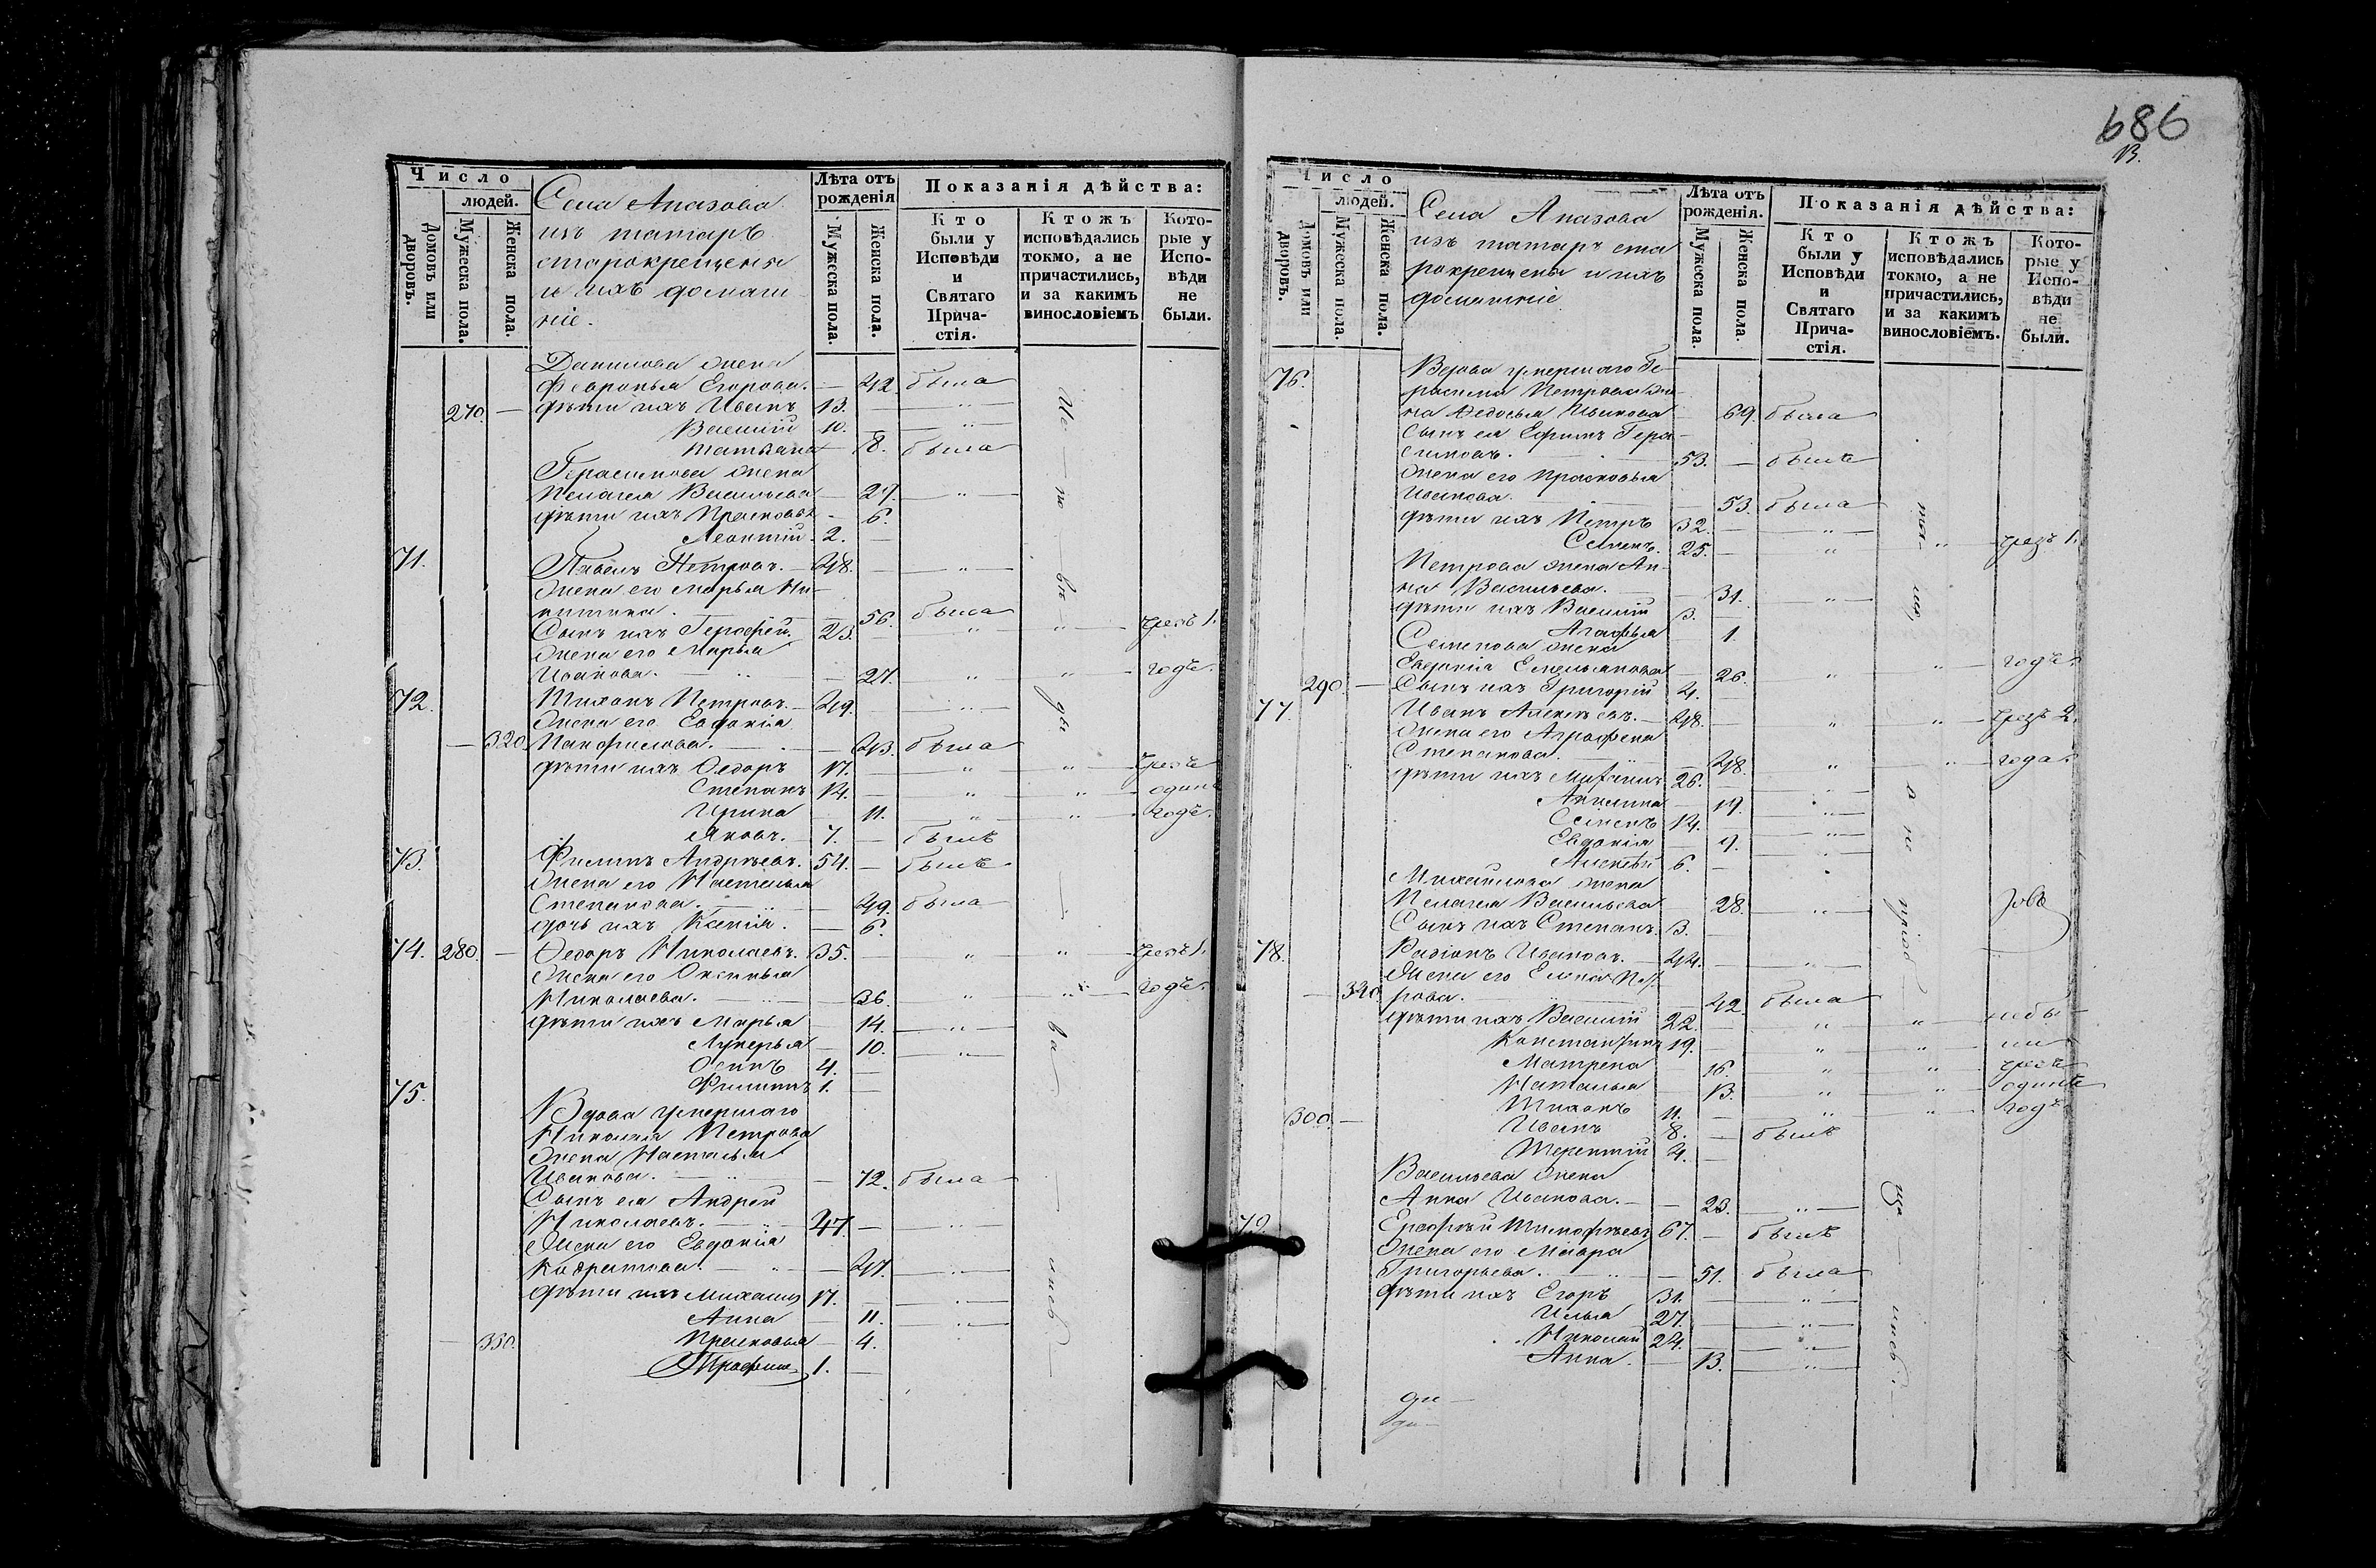 686
Число
людей.
Домовъ или дворовъ.
Мужеска пола.
Женска пола.
Села Апазова
изъ татаръ
старокрещены
и ихъ домаш-
ніе.
Лѣта отъ рожденія
Мужеска пола.
Женска пола.
Показанія дѣйства:
Кто были у Исповѣди и Святаго Прича-стія.
Ктожъ исповѣдались токмо, а не причастились, и за какимъ винословіемъ
Кото-рые у Испо-вѣди не были.
Данилова жена
Февронья Егорова. — 42. была
270. — дѣти ихъ Иванъ 13. — "
Василій 10. — "
Татьяна — 8. была
Герасимова жена
Пелагея Васильева — 27. "
дѣти ихъ Прасковья — 6.
Леонтій. 2. —
71. Павелъ Петровъ. 48. — "
Жена его Марья Ни-
китина. — 56. была
Сынъ ихъ Герасфей. 23. — " " чрезъ 1.
Жена его Марья
Иванова. — 27. " " годъ.
72. Тихонъ Петровъ. 49. — "
Жена его Евдокія
— 320 Панфилова. — 43. была
дѣти ихъ Ѳедоръ 17. — " " чрезъ
Степанъ 14. — " " одинъ
Ирина 11. " " годъ.
Яковъ. 7. — былъ
73. Филипъ Андреевъ. 54. — былъ
Жена его Настасья
Степанова. — 49. была
дочь ихъ Ксенія. — 6.
74. 280. — Ѳедоръ Николаевъ. 35. — " " чрезъ 1.
Жена его Оксинья
Николаева. — 36. " " годъ.
дѣти ихъ Марья — 14. "
Лукерья — 10. "
Осипъ 4. —
Филиппъ 1. —
75. Вдова умершаго
Николая Петрова
Жена Настасья
Иванова. — 72. была
Сынъ ея Андрей
Николаевъ. 47. — "
Жена его Евдокія
Кодратова. — 47. "
дѣти ихъ Михаилъ 17. — "
Анна — 11. "
— 330. Прасковья — 4.
Трофимъ 1. —
Число
людей.
Домовъ или дворовъ.
Мужеска пола.
Женска пола.
Села Апазова
изъ татаръ ста
рокрещены и ихъ
домашніе
Лѣта отъ рожденія.
Мужеска пола.
Женска пола.
Показанія дѣйства:
Кто были у Исповѣди и Святаго Прича-стія.
Ктожъ исповѣдались токмо, а не причастились, и за какимъ винословіемъ.
Кото-рые у Испо-вѣди не были.
76. Вдова умершаго Ге-
расима Петрова же-
на Ѳедосья Иванова 69. была
Сынъ ея Ефимъ Гера-
симовъ. 53. — былъ
Жена его Прасковья
Иванова. — 53. была
дѣти ихъ Петръ 32. — "
Семенъ. 25. — " " чрезъ 1.
Петрова жена Ан-
на Васильева. — 31. "
дѣти ихъ Василій 3. —
Агафья 1.
Семенова жена
Евдокія Емельянова 26. " " годъ.
290. — Сынъ ихъ Григорій 4.
77. Иванъ Алексѣевъ. 48. — " " чрезъ 2.
Жена его Аграфена
Степанова. — 48. " " года.
дѣти ихъ Михаилъ 26. — "
Акилина — 19. "
Семенъ 14. — "
Евдокія — 9. "
Алексѣй 6. —
Михайлова жена
Пелагея Васильева 28. "
Сынъ ихъ Степанъ. 3. —
78. Радіонъ Ивановъ. 44. — "
Жена его Елена Пет
— 340 рова. — 42 была
дѣти ихъ Василій 22. — " " небы-
Константинъ 19. — " " ли
Матрена 16. " " чрезъ
Наталья 13. " " одинъ
Тихонъ 11. — " " годъ
300. — Иванъ 8. — былъ
Терентій 4. —
Васильева жена
Анна Иванова. — 23. "
79. Ерофѣй Тимофѣевъ 67. — былъ
Жена его Мавра
Григорьева. — 51. была
дѣти ихъ Егоръ 31. — "
Илья 27. — "
Николай 24. — "
Анна. — 13. "